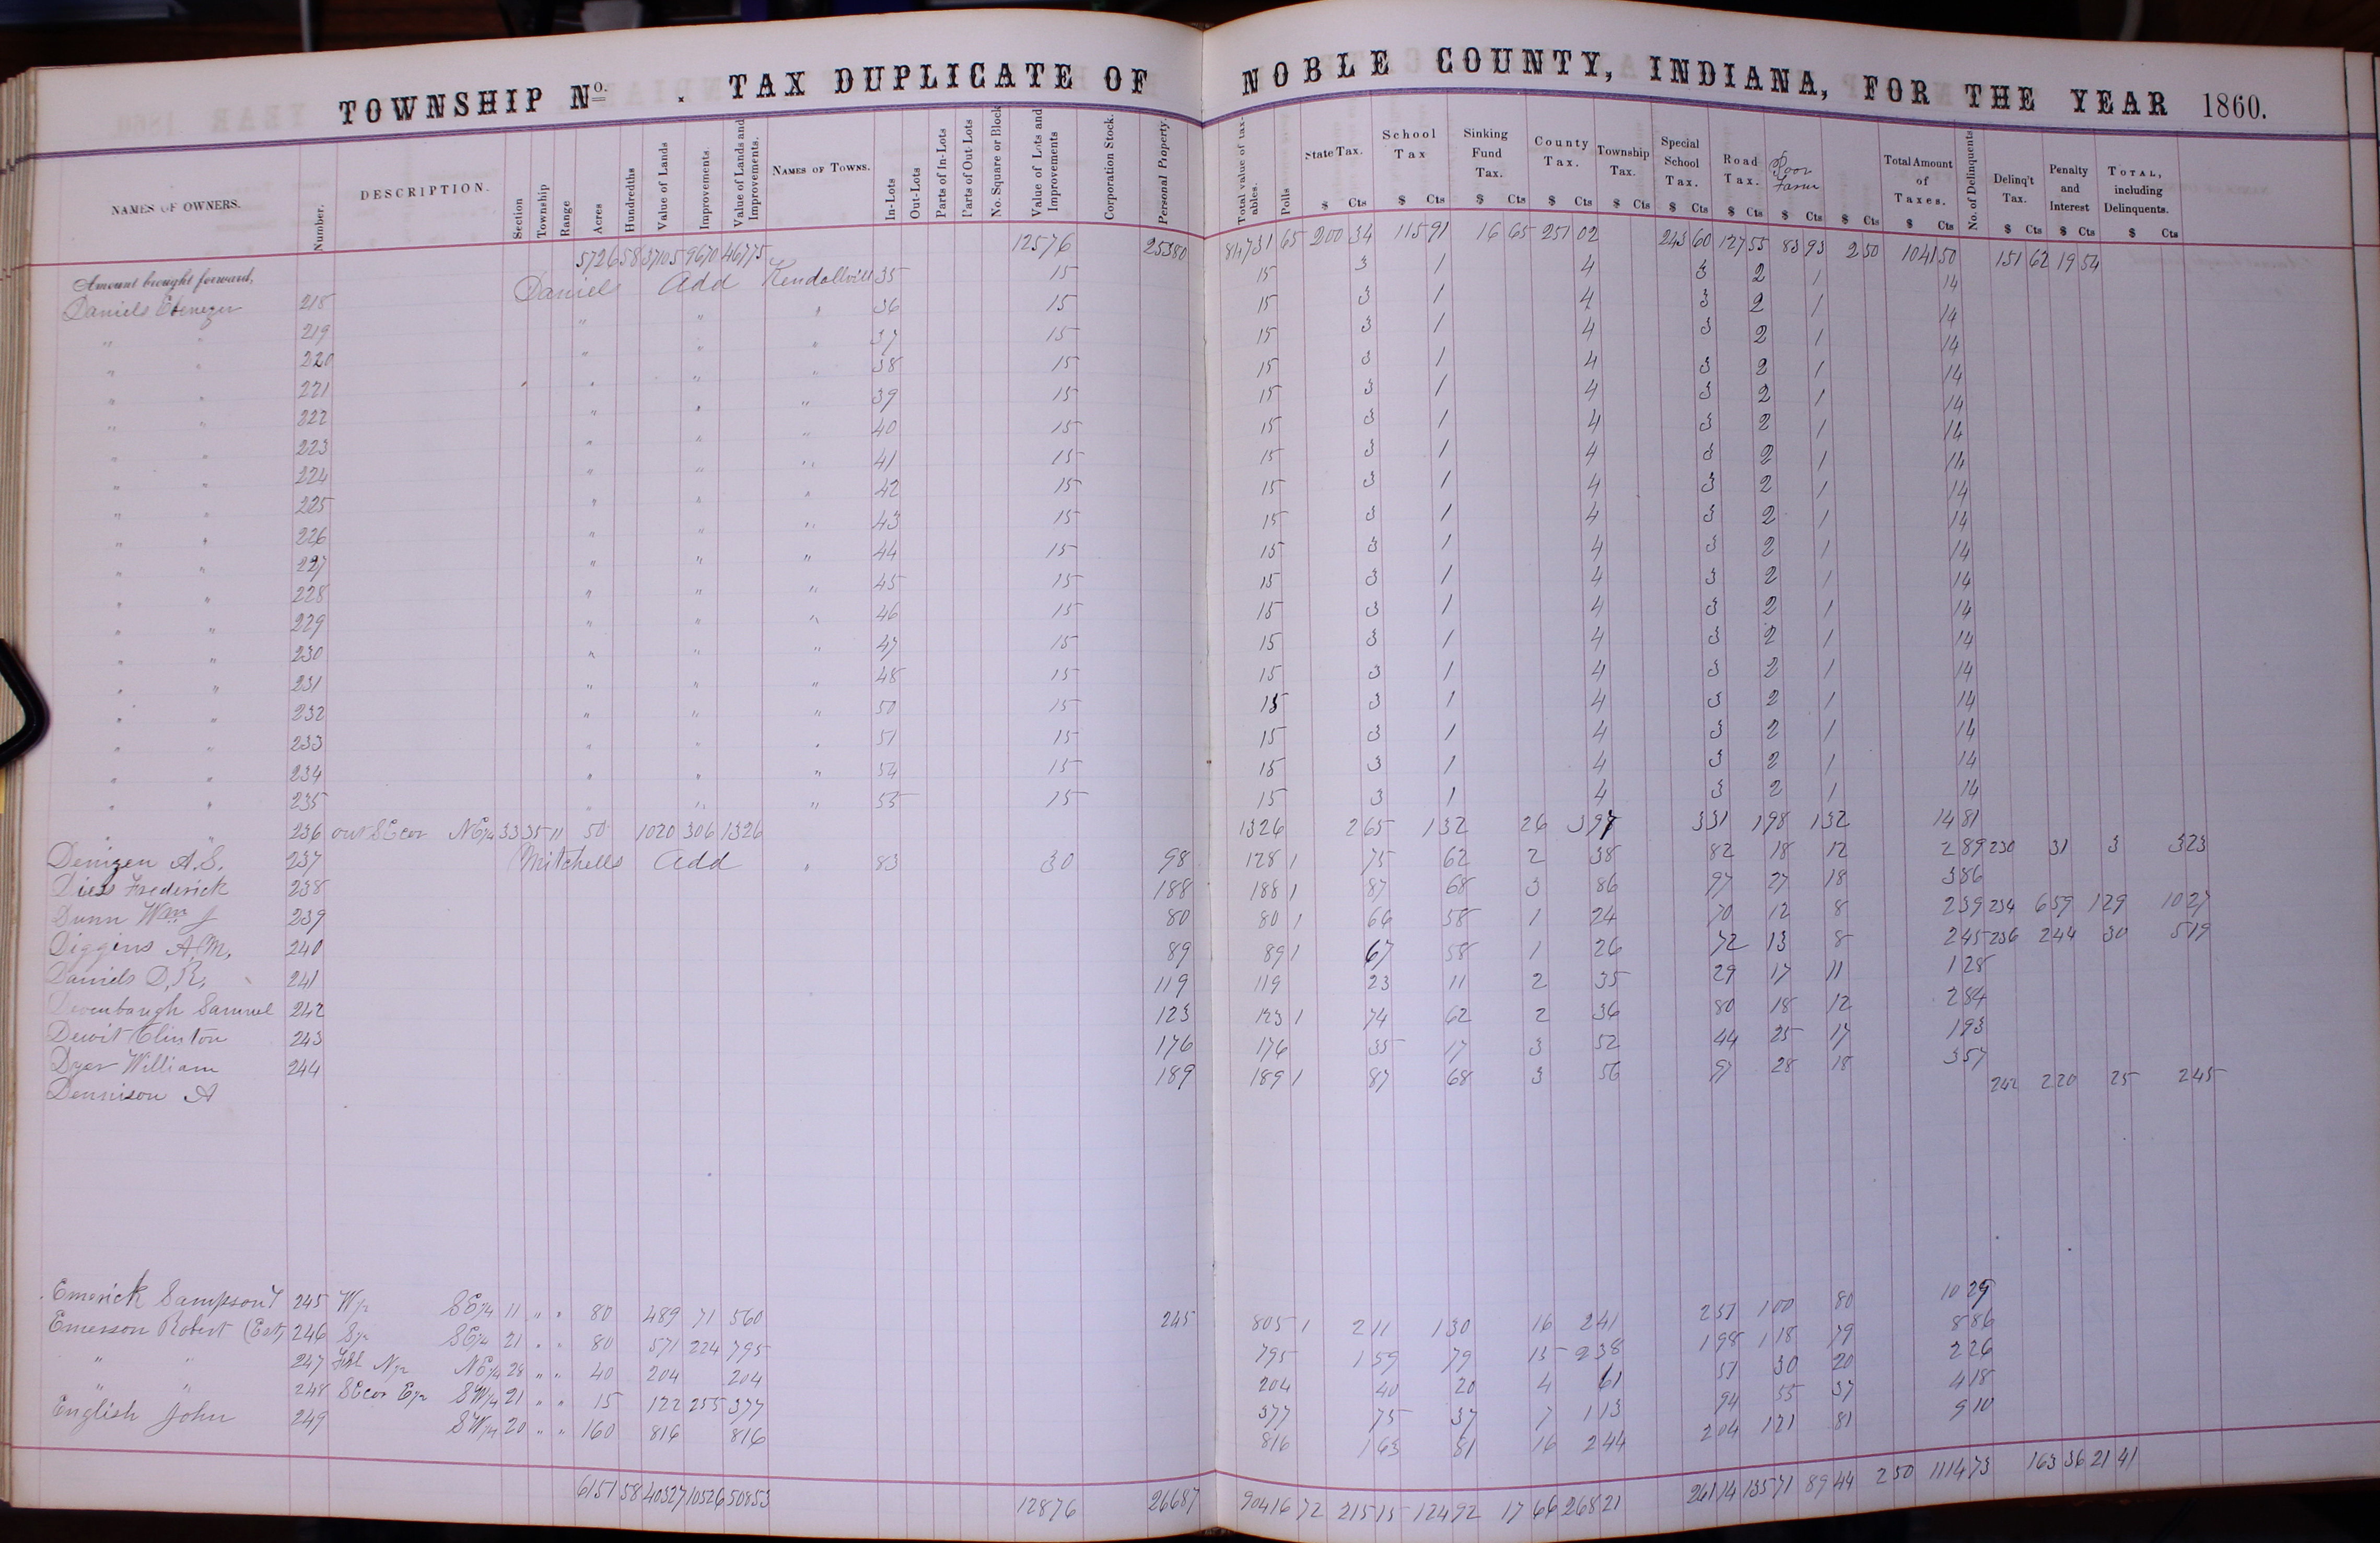 TOWNSHIP No. . TAX DUPLICATE OF NOBLE COUNTY, INDIANA, FOR THE YEAR 1860.
NAMES OF OWNERS. Number. DESCRIPTION. Section Township Range Acres Hundredths Value of Lands Improvements. Value of Lands and Improvements. NAMES OF TOWNS. In-Lots Out-Lots Parts of In-Lots Parts of Out-Lots No. Square or Block Value of Lots and Improvements Corporation Stock. Personal Property. Total value of taxables. Polls State Tax. School Tax Sinking Fund Tax. County Tax. Township Tax. Special School Tax. Road Tax. Poor Farm Total Amount of Taxes. No. of Delinquents. Delinq't Tax. Penalty and Interest TOTAL, including Delinquents.
$ Cts $ Cts $ Cts $ Cts $ Cts $ Cts $ Cts $ Cts $ Cts $ Cts $ Cts $ Cts $ Cts
Amount brought forward, 5726 58 37105 9670 46775 12576 25380 81473 1 65 200 34 115 91 16 65 251 02 243 60 127 55 83 93 2 50 1041 50 151 62 19 54
Daniels Ebenezer 218 Daniels Add Kendallvill 35 15 15 3 1 4 3 2 1 14
" " 219 " " " 36 15 15 3 1 4 3 2 1 14
" " 220 " " " 37 15 15 3 1 4 3 2 1 14
" " 221 " " " 38 15 15 3 1 4 3 2 1 14
" " 222 " " " 39 15 15 3 1 4 3 2 1 14
" " 223 " " " 40 15 15 3 1 4 3 2 1 14
" " 224 " " " 41 15 15 3 1 4 3 2 1 14
" " 225 " " " 42 15 15 3 1 4 3 2 1 14
" " 226 " " " 43 15 15 3 1 4 3 2 1 14
" " 227 " " " 44 15 15 3 1 4 3 2 1 14
" " 228 " " " 45 15 15 3 1 4 3 2 1 14
" " 229 " " " 46 15 15 3 1 4 3 2 1 14
" " 230 " " " 47 15 15 3 1 4 3 2 1 14
" " 231 " " " 48 15 15 3 1 4 3 2 1 14
" " 232 " " " 50 15 15 3 1 4 3 2 1 14
" " 233 " " " 51 15 15 3 1 4 3 2 1 14
" " 234 " " " 54 15 15 3 1 4 3 2 1 14
" " 235 " " " 55 15 15 3 1 4 3 2 1 14
" " 236 out SE cor NE/4 33 35 11 50 1020 306 1326 1326 2 65 1 32 26 3 97 3 31 1 98 1 32 14 81
Denizen A.S. 237 Mitchells Add " 83 30 98 128 1 75 62 2 38 82 18 12 2 89 230 31 3 3 23
Diess Frederick 238 188 188 1 87 68 3 86 97 27 18 3 86
Dunn Wm J 239 80 80 1 66 58 1 24 70 12 8 2 39 234 6 59 1 29 10 27
Diggins A.M. 240 89 89 1 67 58 1 26 72 13 8 2 45 236 2 44 30 5 19
Daniels D.R. 241 119 119 23 11 2 35 29 17 11 1 28
Devenbaugh Samuel 242 123 123 1 74 62 2 36 80 18 12 2 84
Dewit Clinton 243 176 176 35 17 3 52 44 25 17 1 93
Dyer William 244 189 189 1 87 68 3 56 97 28 18 3 57
Dennison A 242 2 20 25 2 45
Emerick Sampson 245 W/2 SE/4 11 " " 80 489 71 560 245 805 1 2 11 1 30 16 2 41 2 51 1 00 80 10 29
Emerson Robert (Est) 246 S/2 SE/4 21 " " 80 571 224 795 795 1 59 79 15 2 38 1 98 1 18 79 8 86
" " 247 N/2 NE/4 28 " " 40 204 204 204 40 20 4 61 51 30 20 2 26
" " 248 SE cor E/2 SW/4 21 " " 15 122 255 377 377 75 37 7 1 13 94 55 37 4 18
English John 249 SW/4 20 " " 160 816 816 816 1 63 81 16 2 44 2 04 1 21 81 9 10
6151 58 40327 10526 50853 12876 26687 90416 72 215 15 124 92 17 66 268 21 261 14 135 71 89 44 2 50 1114 73 163 36 21 41